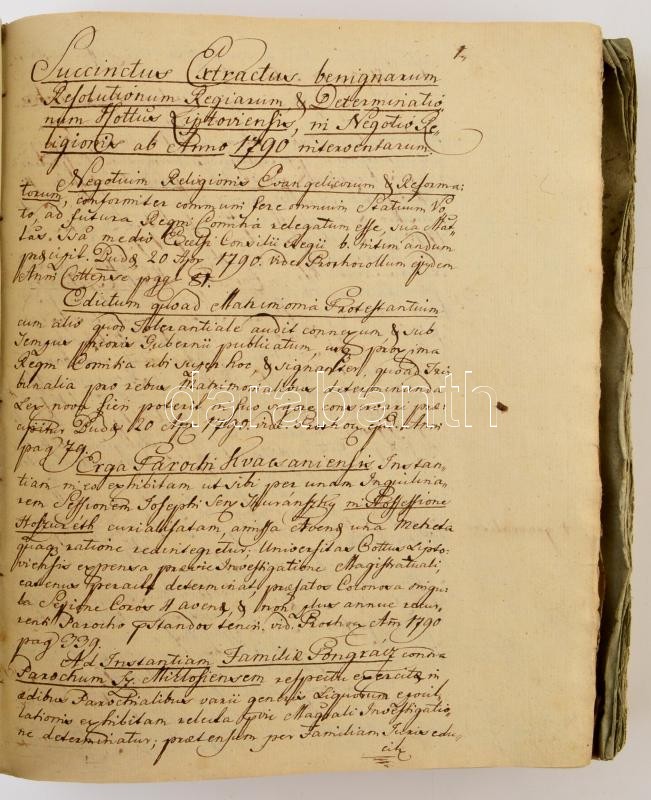 1.
Succinctus Extractus benignarum
Resolutionum Regiarum & Determinatio
num Cottus Liptoviensis, in Negotio Re-
ligionis ab Anno 1790 interventarum.
Negotium Religionis Evangelicorum & Reforma-
torum, conformiter communi fere omnium Statuum Vo-
to, ad futura Regni Comitia relegatum esse, sua Mat-
tas. Ssa medio Excelsi Consilii Regii b. intimandum
præcipit. Budæ 20 Apr 1790. videt Prothocollum ejusdem
Anni Cottense pag. 81.
Edictum quoad Matrimonia Protestantium
cum alio quod Tolerantiale audit connexum & sub
Tempus prioris Gubernii publicatum, usq próxima
Regni Comitia ubi super hoc, & signanter, quoad Tri
bunalia pro rebus Matrimonialibus determinanda
Lex nova fieri poterit in suo vigore conservari præ-
cipitur Budæ 20 Apr 1790. vid. Prothoc. ejusd. Anni
pag 79.
Erga Parochi Kvacsaniensis Instan-
tiam in eo exhibitam ut sibi per unam Inquilina-
rem Sessionem Josephi Seny Thuránszky in Possessione
Hoszureth curialisatam, amissa Avenæ una Metreta
quapiam ratione redintegretur; Universitas Cottus Lipto-
viensis expensa prævie Investigatione Magistratuali
eatenus peracta determinat, præfatos Colonos singu-
la Sessione Coros Avenæ, & non plus annue
Parocho præstandos teneri. vid. Prothoc. Ani 1790
pag 339.
Ad Instantiam Familiæ Pongrácz contra
Parochum Sz. Miklosiensem respectu exercitæ in
ædibus Parochialibus varii generis Liquorum educil
lationis exhibitam relata prævie Magistrali Investigatio
ne determinatur; prætensum per Familiam Juris edu-
cil
darabanth